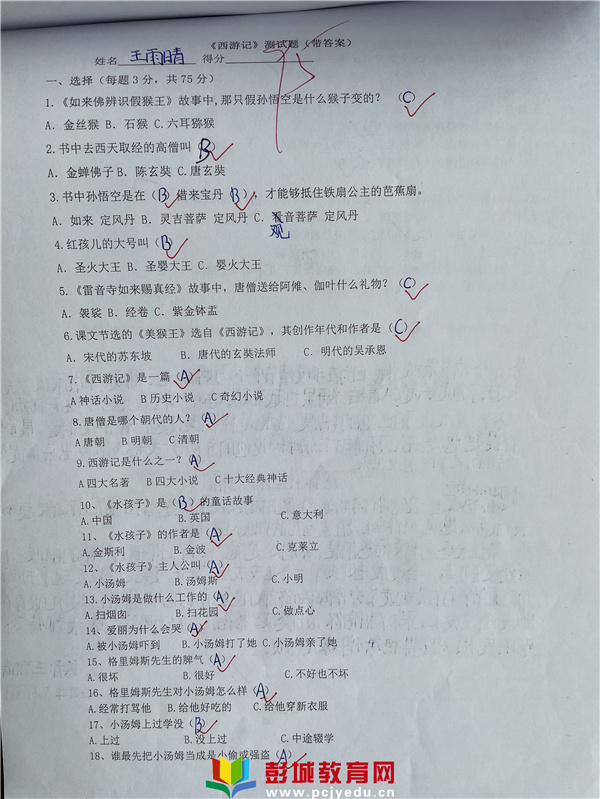 《西游记》测试题（带答案）
姓名 王雨晴 得分 75
一、选择（每题3分，共75分）
1.《如来佛辨识假猴王》故事中,那只假孙悟空是什么猴子变的？（C）
A．金丝猴 B．石猴 C.六耳猕猴
2.书中去西天取经的高僧叫（B）
A．金蝉佛子 B．陈玄奘 C.唐玄奘
3.书中孙悟空是在（B）借来宝丹（B），才能够抵住铁扇公主的芭蕉扇。
A．如来 定风丹 B．灵吉菩萨 定风丹 C．看音菩萨 定风丹
观
4.红孩儿的大号叫（B）
A．圣火大王 B．圣婴大王 C．婴火大王
5.《雷音寺如来赐真经》故事中，唐僧送给阿傩、伽叶什么礼物？（C）
A．袈裟 B．经卷 C．紫金钵盂
6.课文节选的《美猴王》选自《西游记》，其创作年代和作者是（C）
A．宋代的苏东坡 B．唐代的玄奘法师 C．明代的吴承恩
7.《西游记》是一篇（A）
A 神话小说 B 历史小说 C 奇幻小说
8.唐僧是哪个朝代的人？（A）
A 唐朝 B 明朝 C 清朝
9.西游记是什么之一？（A）
A 四大名著 B 四大小说 C 十大经典神话
10、《水孩子》是（B）的童话故事
A.中国 B.英国 C.意大利
11、《水孩子》的作者是（A）
A.金斯利 B.金波 C.克莱立
12、《水孩子》主人公叫（A）
A.小汤姆 B.汤姆斯 C.小明
13.小汤姆是做什么工作的（A）
A.扫烟囱 B.扫花园 C.做点心
14、爱丽为什么会哭（A）
A.被小汤姆吓到 B.小汤姆打了她 C.小汤姆亲了她
15、格里姆斯先生的脾气（A）
A.很坏 B.很好 C.不好也不坏
16、格里姆斯先生对小汤姆怎么样（A）
A.经常打骂他 B.给他好吃的 C.给他穿新衣服
17、小汤姆上过学没（B）
A.上过 B.没上过 C.中途辍学
18、谁最先把小汤姆当成是小偷或强盗（A）
彭城教育网
www.pcjyedu.cn